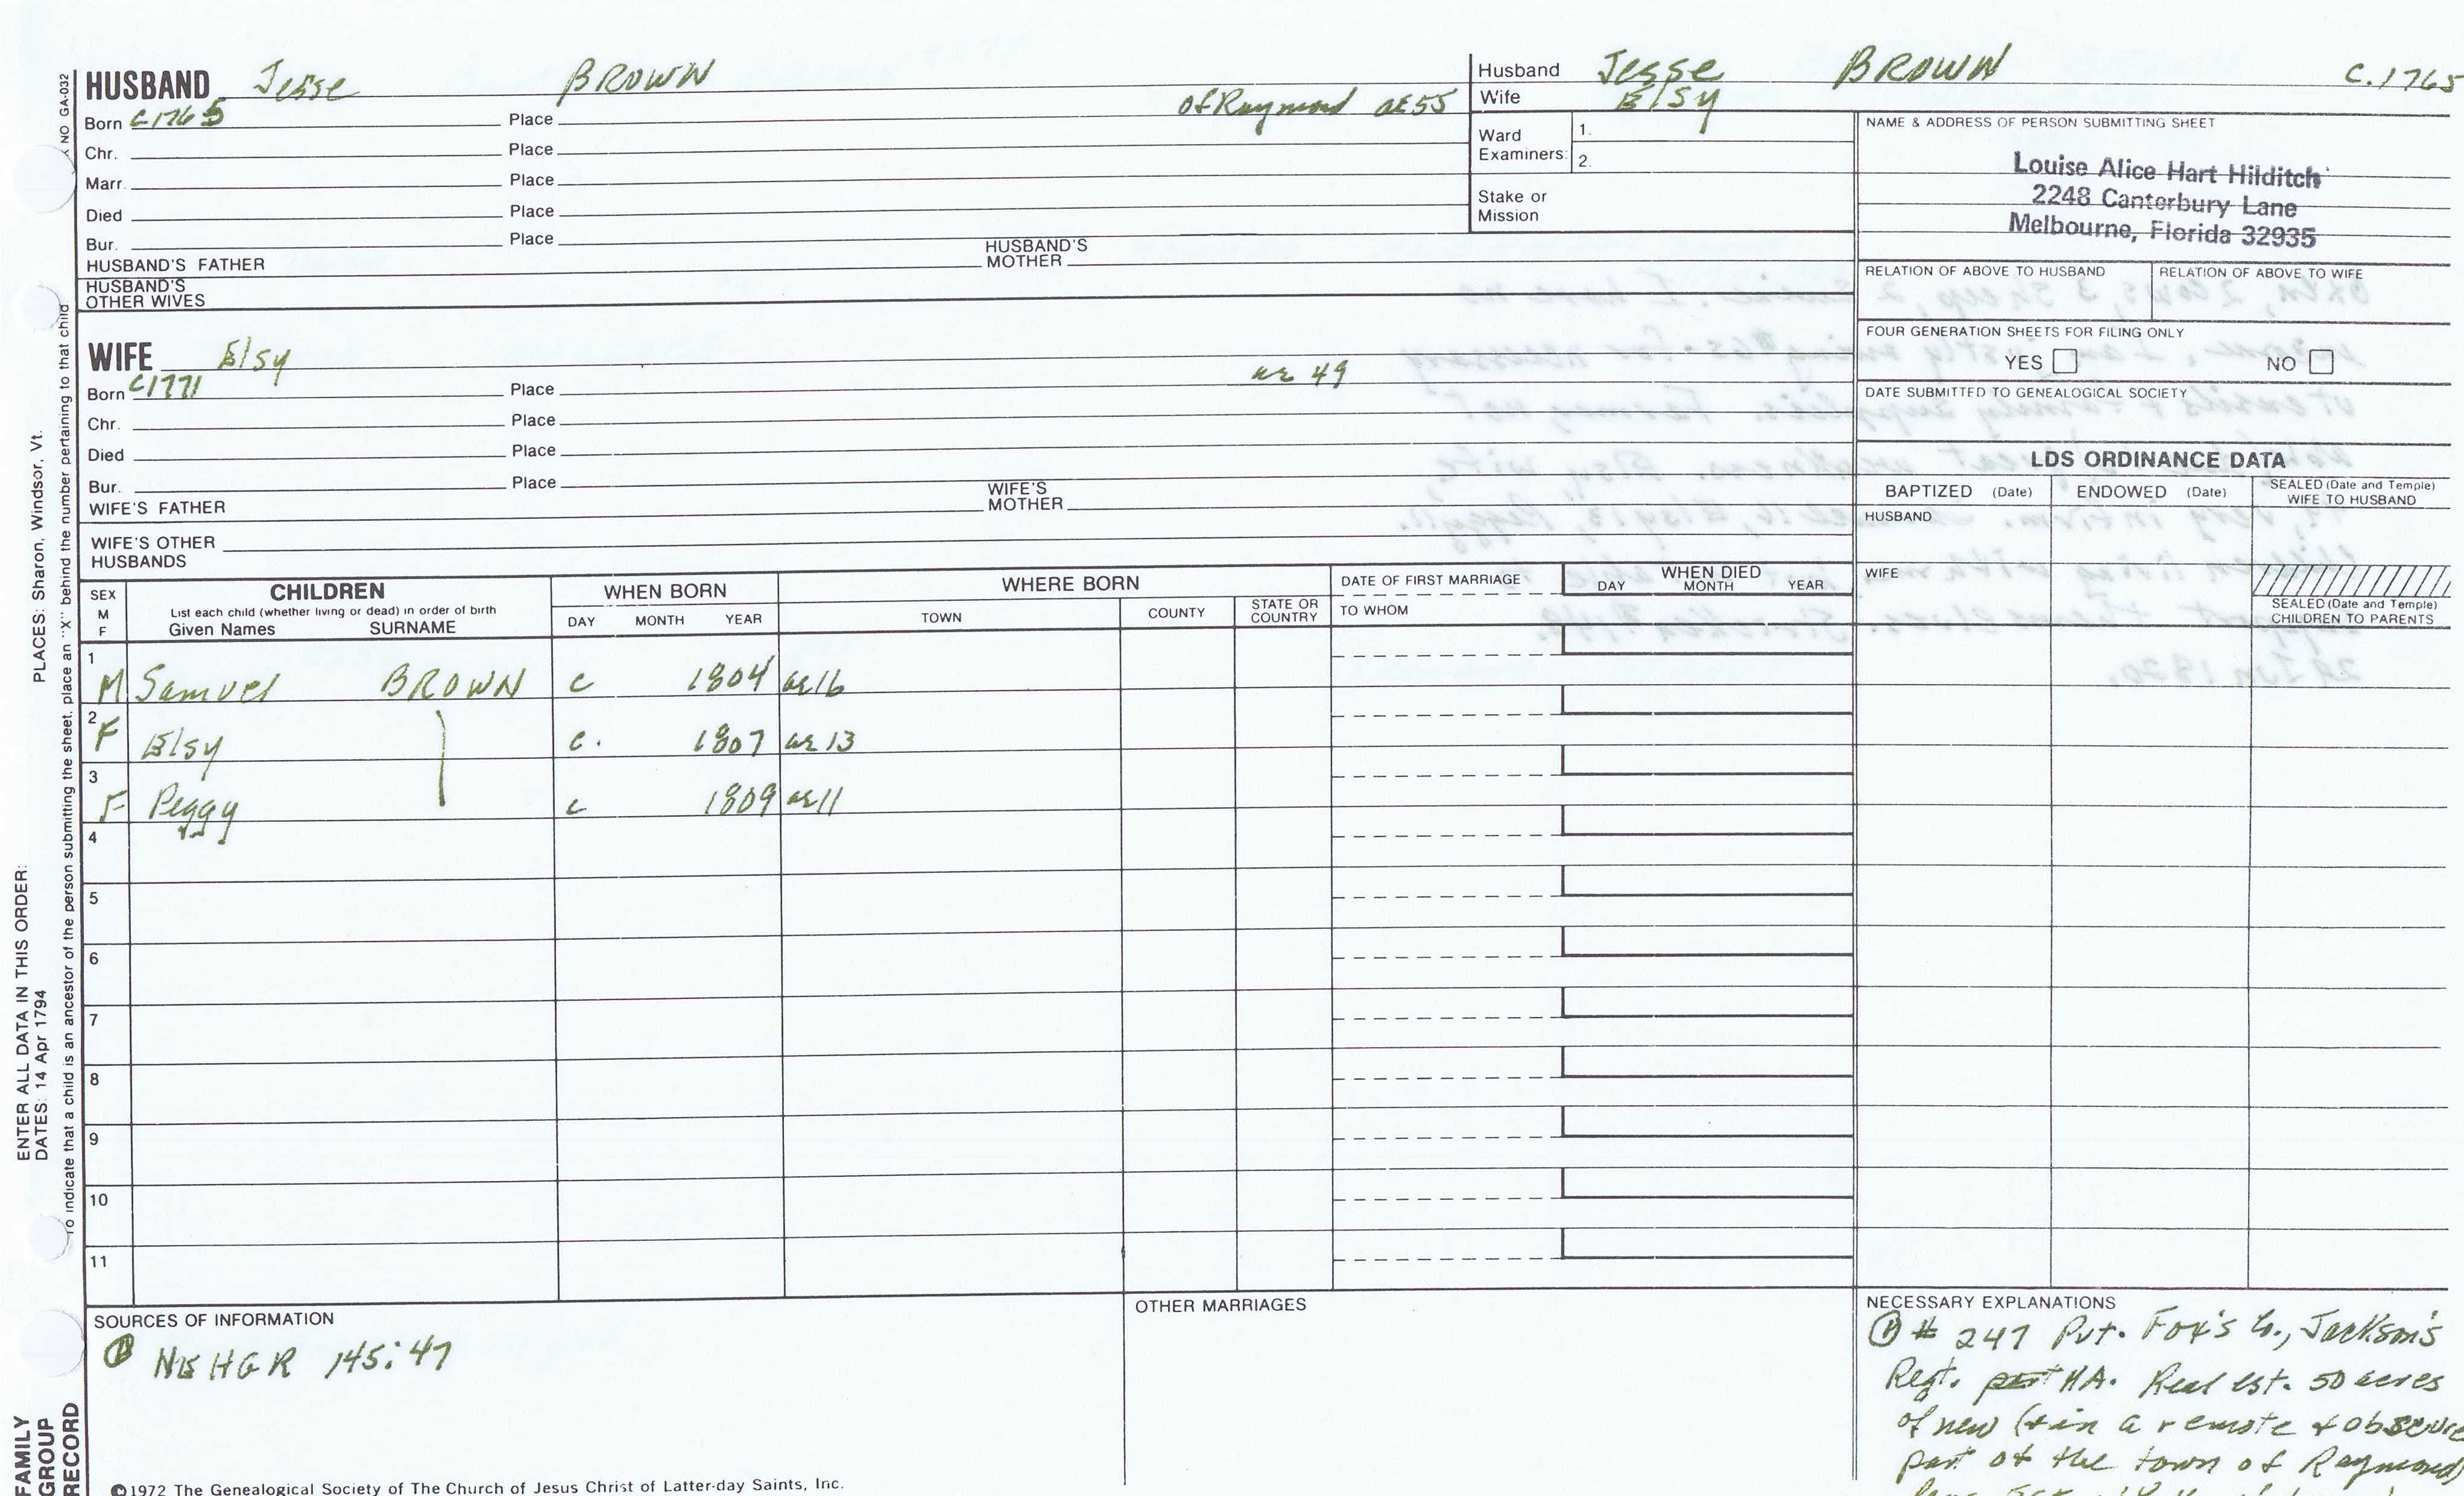 HUSBAND Jesse BROWN
Born C1765 Place of Raymond ae 55
Chr. Place
Marr. Place
Died Place
Bur. Place
HUSBAND'S FATHER HUSBAND'S MOTHER
HUSBAND'S OTHER WIVES
WIFE Elsy
Born C1771 Place ae 49
Chr. Place
Died Place
Bur. Place
WIFE'S FATHER WIFE'S MOTHER
WIFE'S OTHER HUSBANDS
Husband Jesse BROWN C.1765
Wife Elsy
Ward Examiners: 1.
2.
Stake or Mission
NAME & ADDRESS OF PERSON SUBMITTING SHEET
Louise Alice Hart Hilditch
2248 Canterbury Lane
Melbourne, Florida 32935
RELATION OF ABOVE TO HUSBAND RELATION OF ABOVE TO WIFE
FOUR GENERATION SHEETS FOR FILING ONLY
YES NO
DATE SUBMITTED TO GENEALOGICAL SOCIETY
LDS ORDINANCE DATA
BAPTIZED (Date) ENDOWED (Date) SEALED (Date and Temple) WIFE TO HUSBAND
HUSBAND
WIFE
SEALED (Date and Temple) CHILDREN TO PARENTS
SEX M F
CHILDREN
List each child (whether living or dead) in order of birth
Given Names SURNAME
WHEN BORN
DAY MONTH YEAR
WHERE BORN
TOWN COUNTY STATE OR COUNTRY
DATE OF FIRST MARRIAGE
TO WHOM
WHEN DIED
DAY MONTH YEAR
1 M Samuel BROWN c 1804 ae 16
2 F Elsy c. 1807 ae 13
3 F Peggy c 1809 ae 11
4
5
6
7
8
9
10
11
SOURCES OF INFORMATION
NEHGR 145:47
OTHER MARRIAGES
NECESSARY EXPLANATIONS
# 247 Pvt. Fox's Co., Jackson's
Regt. MA. Real est. 50 acres
of new (& in a remote & obscure
part of the town of Raymond)
©1972 The Genealogical Society of The Church of Jesus Christ of Latter-day Saints, Inc.
NO GA-032
To indicate that a child is an ancestor of the person submitting the sheet, place an "X" behind the number pertaining to that child
ENTER ALL DATA IN THIS ORDER:
DATES: 14 Apr 1794 PLACES: Sharon, Windsor, Vt.
FAMILY
GROUP
RECORD